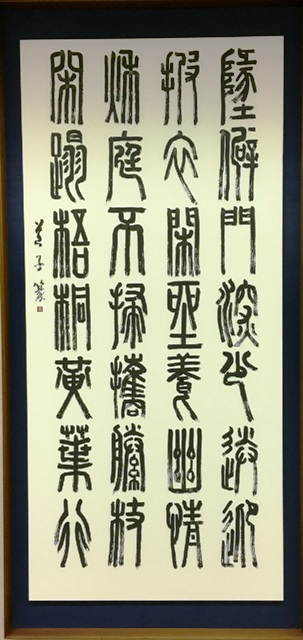 地僻門深少送迎
披衣閑坐養幽情
秋庭不掃攜藤杖
閑蹋梧桐黃葉行
子篆